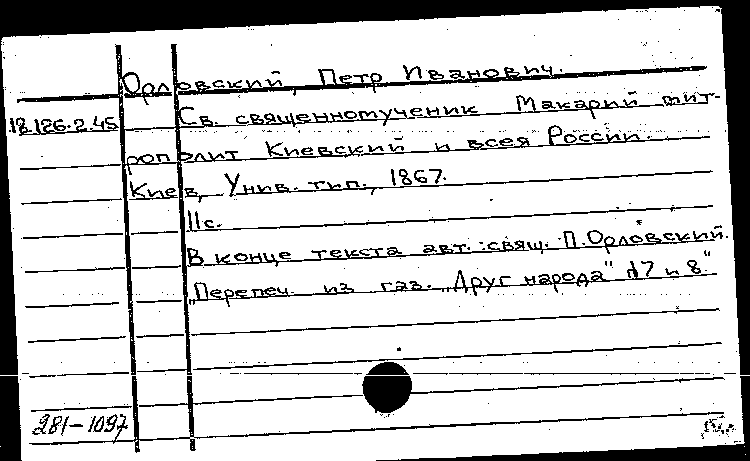 Орловский, Петр Иванович.
18.126.2.45 Св. священномученик Макарий мит-
рополит Киевский и всея России.
Киев, Унив. тип., 1867.
11с.
В конце текста авт.: свящ. П. Орловский.
„Перепеч. из газ. „Друг народа" №7 и 8."
281-1097